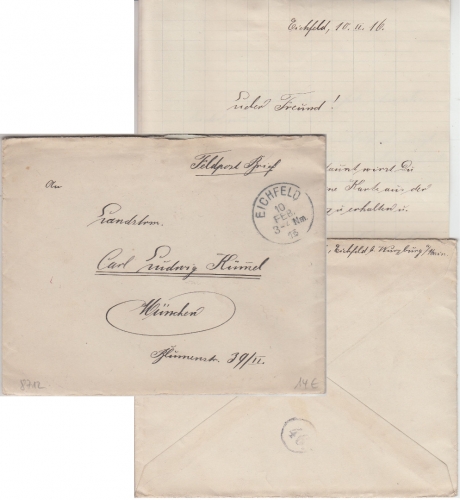 Eichfeld, 10. II. 16.
Lieber Freund!
wirst Du
eine Karte aus der
zu erhalten u.
Feldpost Brief
An
Landstbm.
Carl Ludwig Kümmel
München
Blumenstr. 39/II.
EICHFELD
10
FEB.
3-4 Nm.
16
8712
14 €
, Eichfeld b Würzburg/Main.